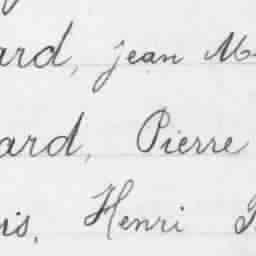 ard, jean M
ard, Pierre
is, Henri